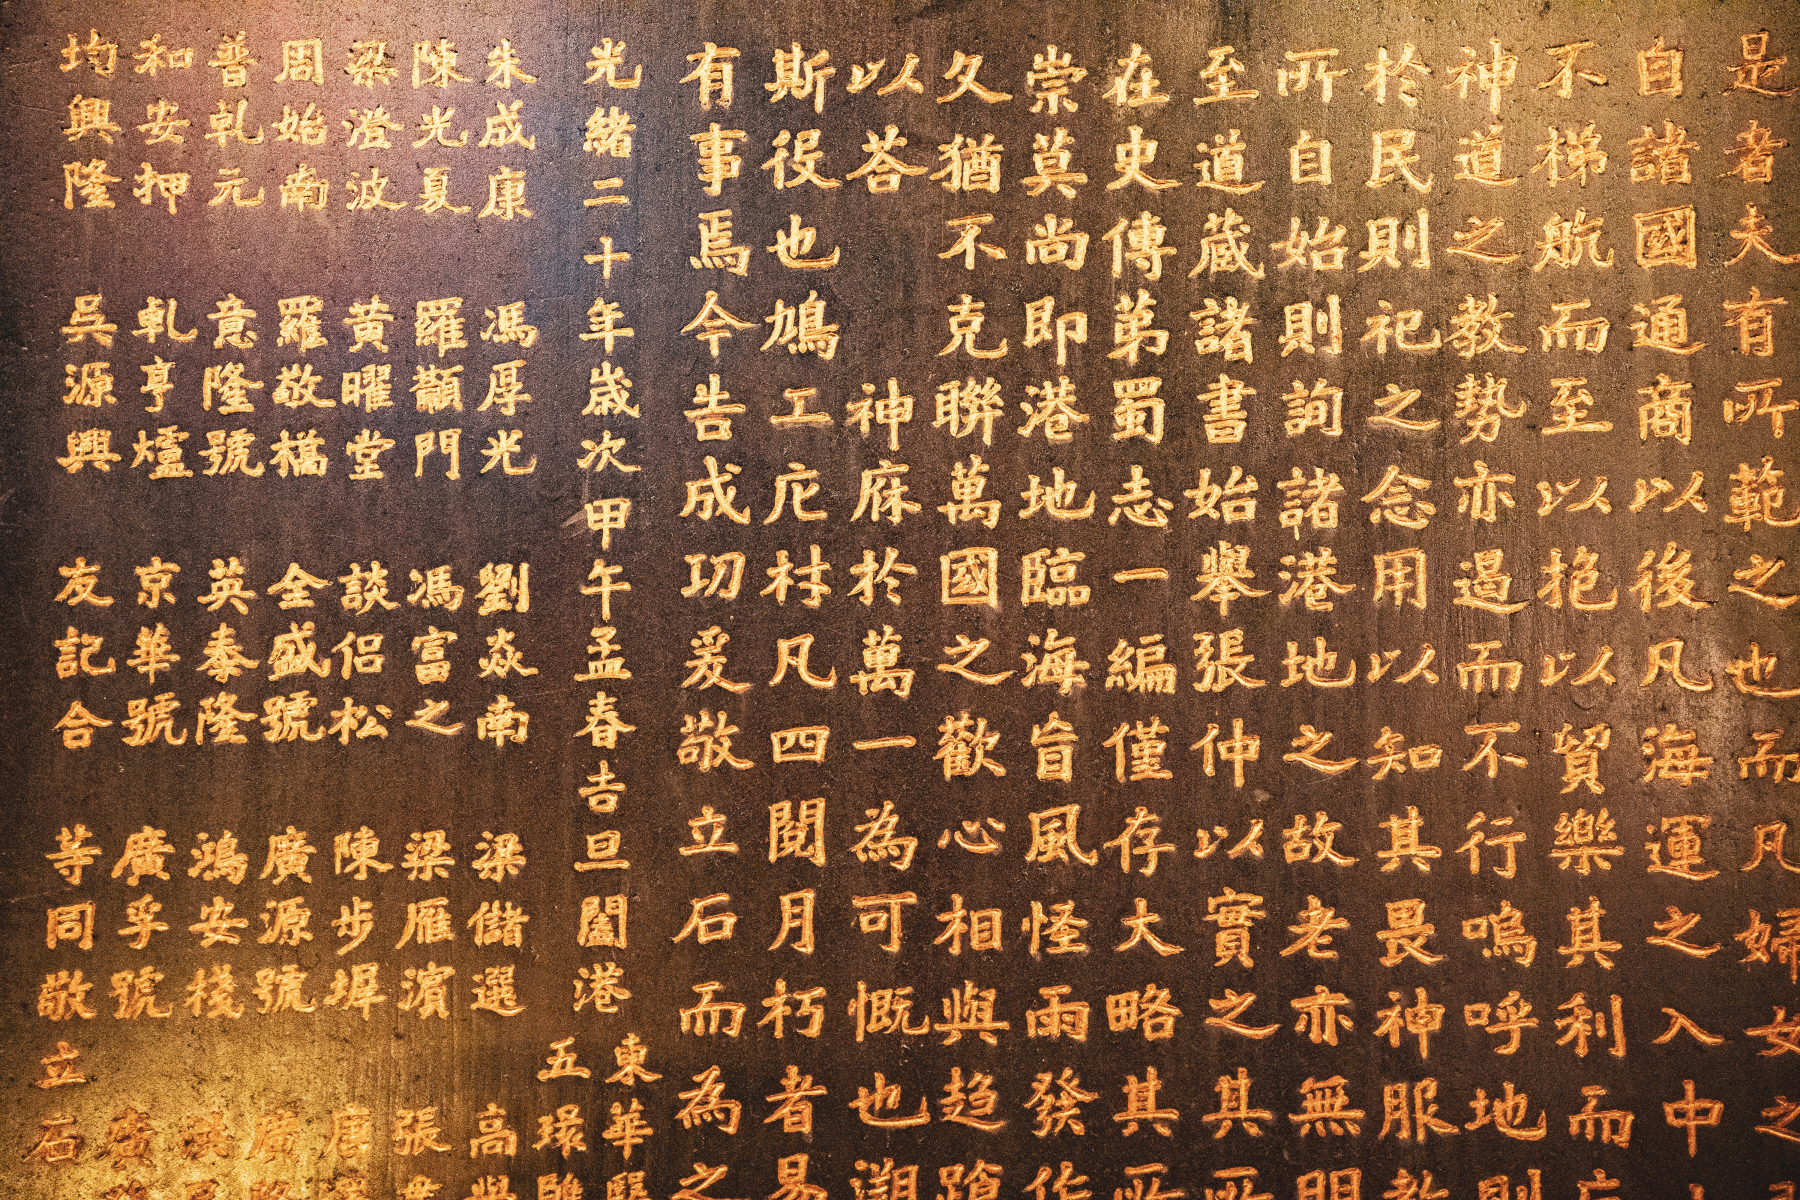 是者夫有所範之也而凡婦女之
自諸國通商以後凡海運之入中
不梯航而至以挹以貿樂其利而
神道之教勢亦遏而不行嗚呼地則
於民則祀之念用以知其畏神服教
所自始則詢諸港地之故老亦無明
至道蔵諸書始舉張仲以實之其所
在史傳苐蜀志一編僅存大略其所
崇莫尚即港地臨海旹風怪雨發作
久猶不克聯萬國之心相與趋蹌
以荅 神庥於萬一為可慨也溯
斯役也鳩工庀村凡四閱月朽者易
有事焉今告成功爰敬立石而為之
光緒二十年歲次甲午孟春吉旦闔港 東華醫 五環
朱成康 馮厚光 劉焱南 梁儲選 高
陳光夏 羅顴門 馮富之 梁雁濱 張
梁澄波 黄曜堂 談侶松 陳步墀 唐
周始南 羅敬檇 全盛號 廣源號 廣
普乹元 意隆號 英泰隆 鴻安棧
和安押 乹亨爐 京華號 廣孚號 廣
均興隆 吳源興 友記合 等同敬立石